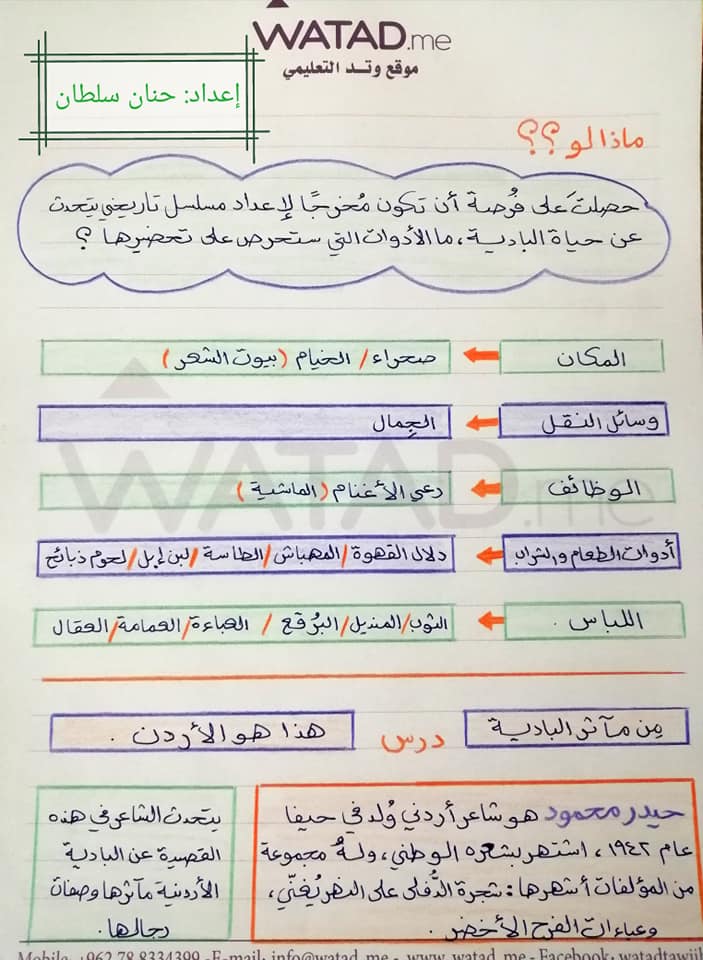 WATAD.me
موقع وتد التعليمي
إعداد: حنان سلطان
ماذا لو ؟؟
حصلتَ على فُرصة أن تكون مُخرجًا لإعداد مسلسل تاريخي يتحدث
عن حياة البادية، ما الأدوات التي ستحرص على تحضيرها ؟
المكان ← صحراء / الخيام (بيوت الشعر)
وسائل النقل ← الجِمال
الوظائف ← رعي الأغنام (الماشية)
أدوات الطعام والشراب ← دلال القهوة / المهباش / الطاسة / لبن إبل / لحوم ذبائح
اللباس . ← الثوب / المنديل / البُرقع / العباءة / العمامة / العقال
مِن مآثر البادية درس هذا هو الأردن .
حيدر محمود هو شاعر أردني وُلد في حيفا
عام ١٩٤٢ ، اشتهر بشعره الوطني، ولهُ مجموعة
من المؤلفات أشهرها : شجرة الدُّفلى على النهر يُغنّي،
وعباءات الفرح الأخضر .
يتحدث الشاعر في هذه
القصيدة عن البادية
الأردنية مآثرها وصفات
رجالها.
WATAD.me
Mobile: +962 78 8334399 -E-mail: info@watad.me - www.watad.me - Facebook: watadtawjih